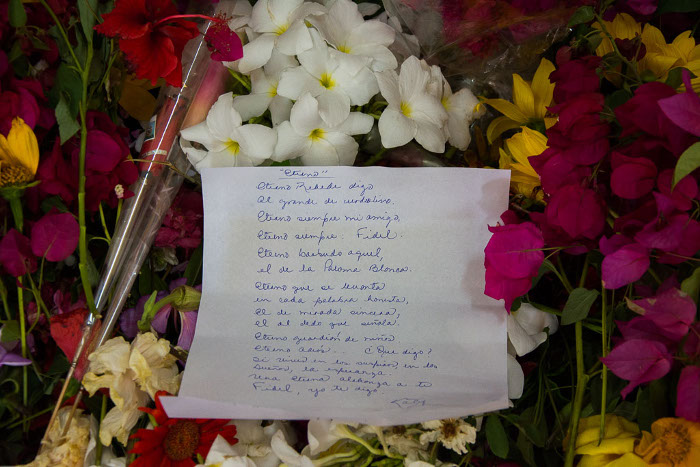 "Eterno"
Eterno Rebelde digo
El grande de verdeolivo.
Eterno siempre mi amigo,
Eterno siempre: Fidel.
Eterno barbudo aquel,
el de la Paloma Blanca.
Eterno que se levanta
en cada palabra honesta,
El de mirada sincera,
el del dedo que señala.
Eterno guardián de niños
Eterno adiós. ¿Qué digo?
Si vives en los en los
sueños, la esperanza.
Una eterna alabanza a ti
Fidel, yo te digo